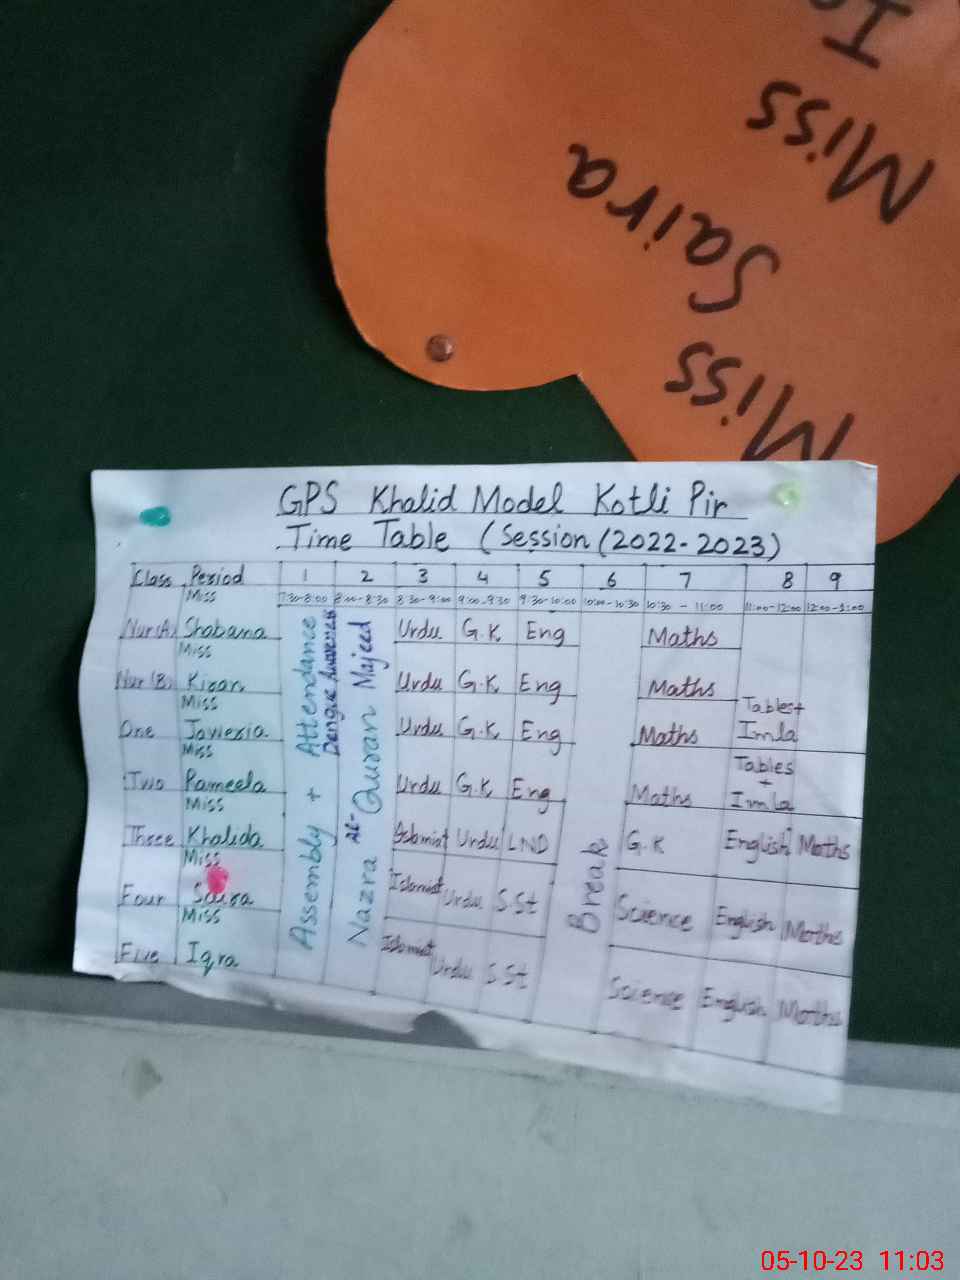 Miss
Saira
Miss
GPS Khalid Model Kotli Pir
Time Table (Session (2022-2023)
Class Period 1 2 3 4 5 6 7 8 9
7:30-8:00 8:00-8:30 8:30-9:00 9:00-9:30 9:30-10:00 10:00-10:30 10:30-11:00 11:00-12:00 12:00-1:00
Nur(A) Miss Shabana Urdu G.K Eng Maths
Nur(B) Miss Kiran Urdu G.K Eng Maths
One Miss Javveria Urdu G.K Eng Maths Tables+ Imla
Two Miss Rameela Urdu G.K Eng Maths Tables + Imla
Three Miss Khalida Islamiat Urdu LND G.K English Maths
Four Miss Saira Islamiat Urdu S.St Science English Maths
Five Miss Iqra Islamiat Urdu S.St Science English Maths
Assembly + Attendance
Dengue Awareness
Nazra Al-Quran Majeed
Break
05-10-23 11:03